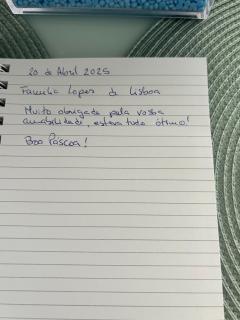 20 de Abril 2025
Família Lopes de Lisboa
Muito obrigada pela vossa
amabilidade, estava tudo ótimo!
Boa Páscoa!